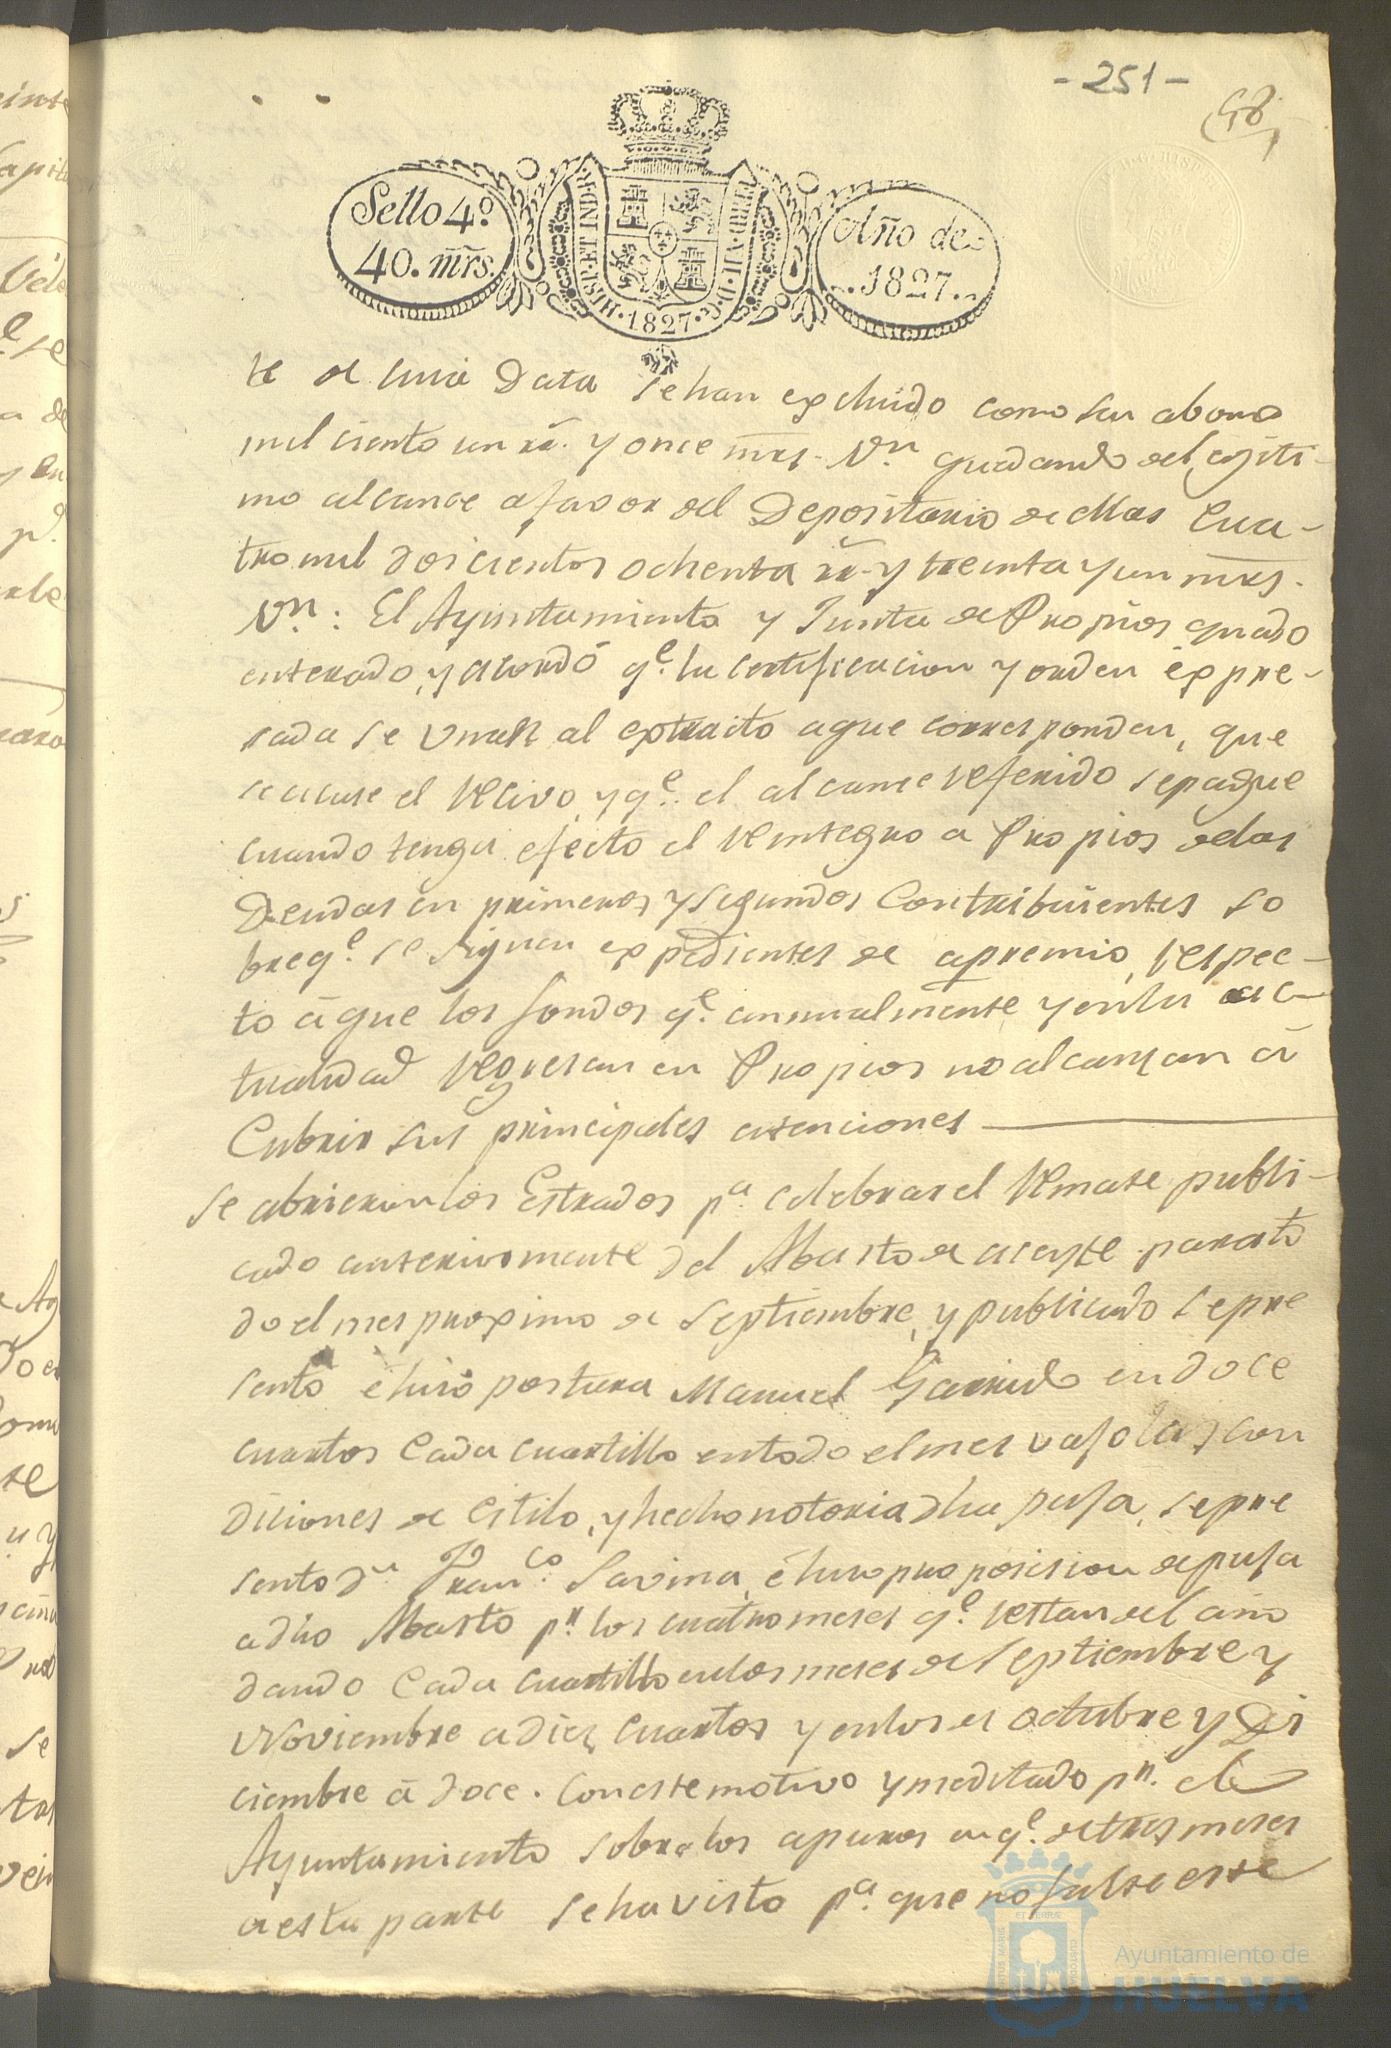 - 251 -
58
Sello 4º
40. mrs.
HISP. ET IND. R.
FERD. VII. D. G.
1827
Año de
1827.
te de cuia Data se han excluido como su abono
mil ciento un rr. y once mrs. Vn. quedando de lejiti-
mo alcance a favor del Depositario de ellas Cua-
tro mil doscientos ochenta rr. y treinta y un mrs.
Vn.: El Ayuntamiento y Junta de Propios quedo
enterado, y acordó qe. la certificacion y orden expre-
sada se unan al extracto a que corresponden, que
se acuse el recivo, y qe. el alcance referido se pague
cuando tenga efecto el reintegro a Propios de las
Deudas en primeros y segundos Contribuientes so
bre qe. se siguen expedientes de apremio, respec-
to á que los fondos qe. annualmente y en la ac-
tualidad regresan en Propios no alcanzan á
Cubrir sus principales atenciones
Se abrieron los Estrados pa. celebrar el remate publi-
cado anteriormente del Abasto de aceyte para to
do el mes proximo de Septiembre, y publicado se pre
sentó é hizo postura Manuel Garrido en doce
cuartos Cada cuartillo en todo el mes vajo las con
diciones de estilo, y hecho notoria dha puja, se pre
sento Dn. Franco. Savina, é hizo proposicion de puja
a dho Abasto pr. los cuatro meses qe. restan del año
dando Cada cuartillo en los meses de Septiembre y
Noviembre a diez cuartos y en los de octubre y Di
ciembre á doce. Con este motivo y meditado pr. el
Ayuntamiento sobre los apuros en qe. de tres meses
a esta parte se ha visto pa. que no falte este
Ayuntamiento de
HUELVA